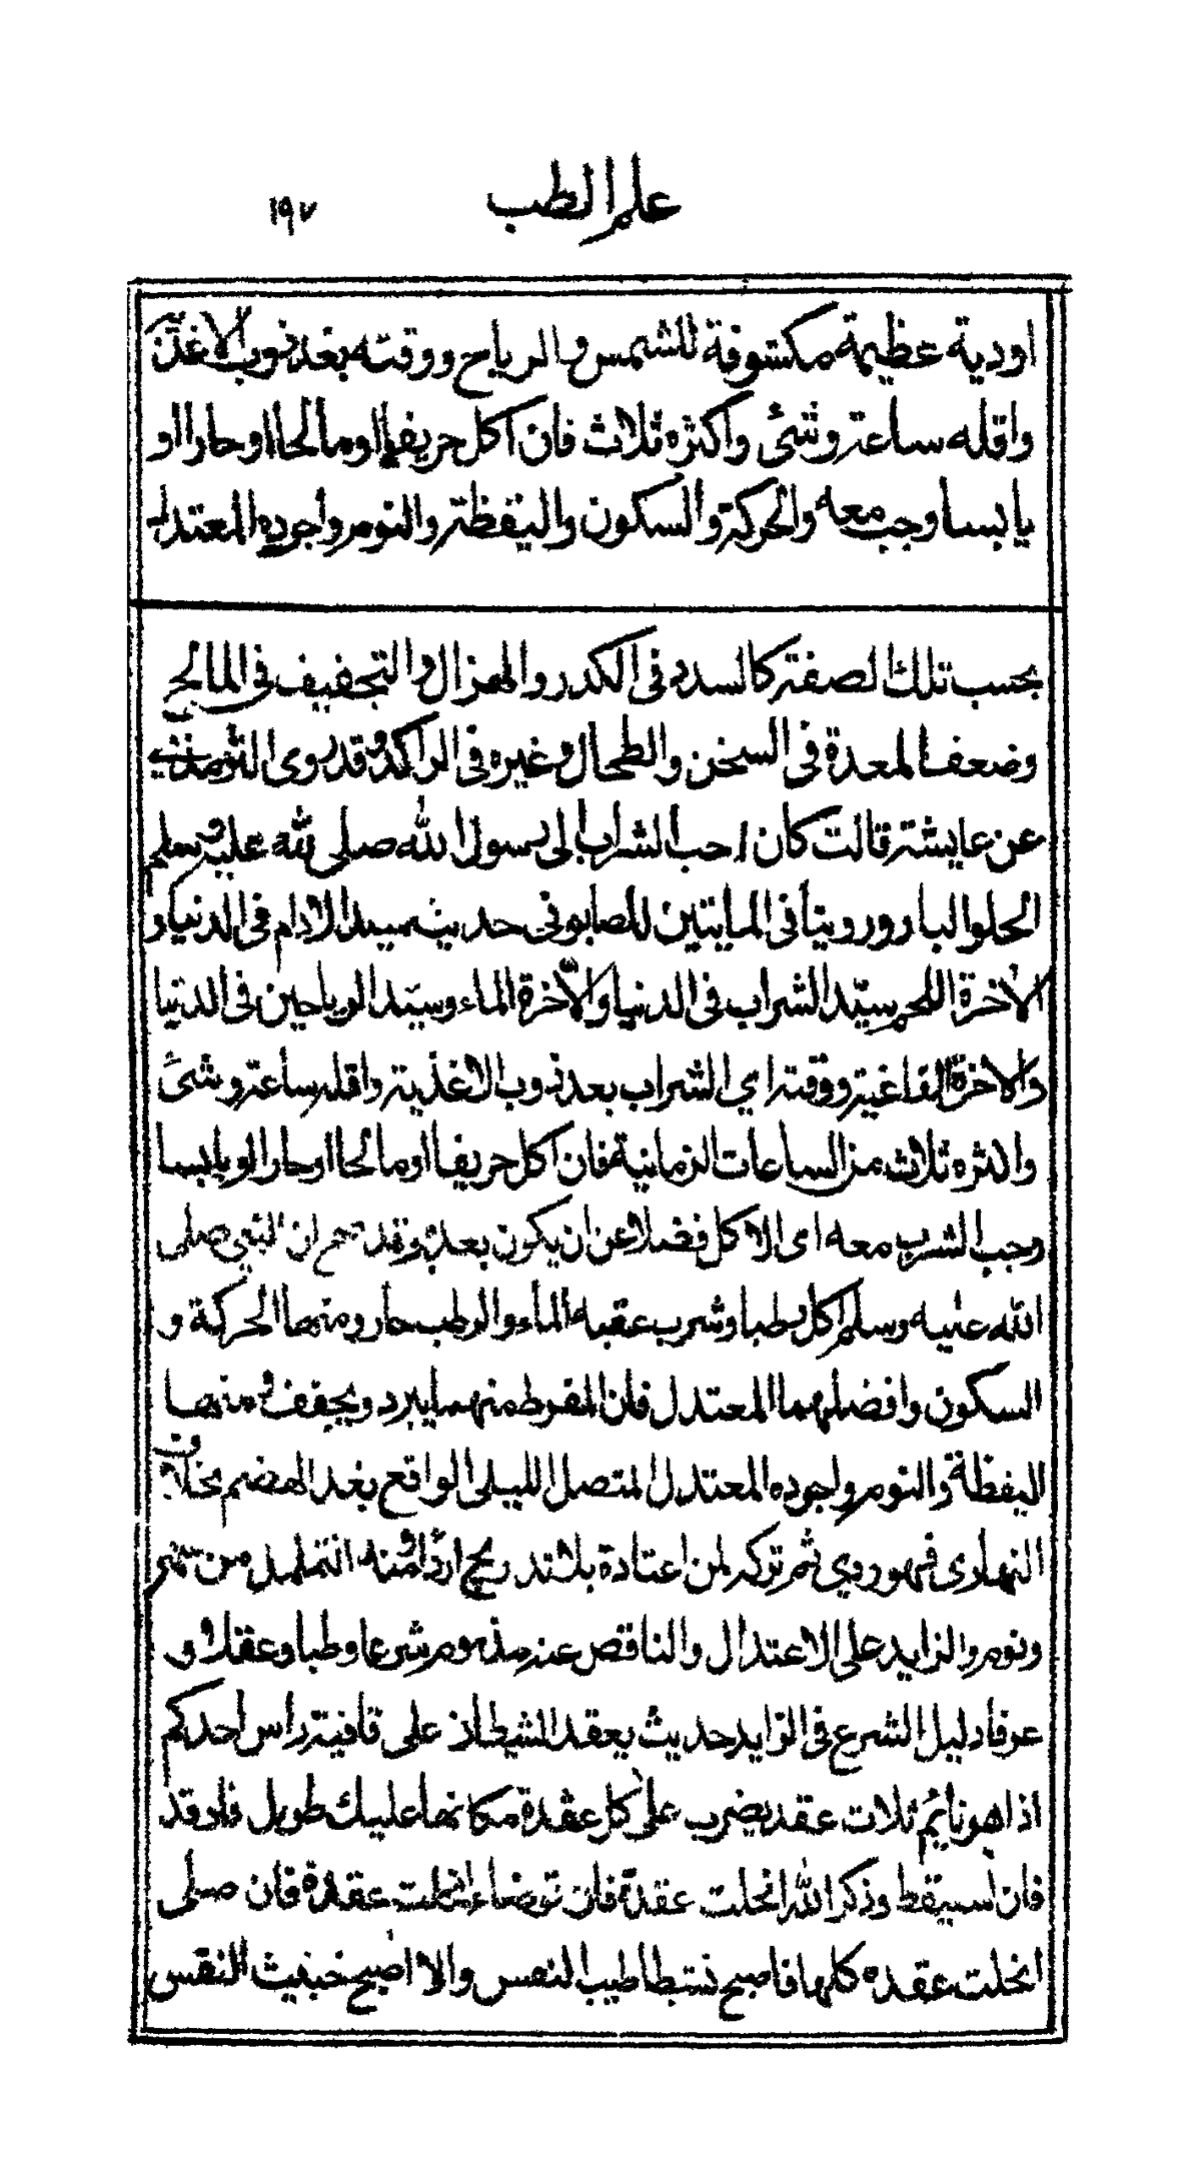 علم الطب ١٩٧
اودية عظيمة مكشوفة للشمس والرياح ووقته بعد ذوب الاغذية
واقله ساعة وشئ واكثره ثلاث فان اكل حريفا او مالحا او حارا او
يابسا وجب معه والحركة والسكون واليقظة والنوم واجوده المعتدل
بحسب تلك الصفة كالسدد فى الكدر والهزال والتجفيف فى المالح
وضعف المعدة فى السخن والطحال وغيره فى الراكد وقد روى الترمذى
عن عايشة قالت كان احب الشراب الى رسول الله صلى الله عليه وسلم
الحلو البارد وروينا فى المايتين للصابونى حديث سيد الادام فى الدنيا و
الاخرة اللحم سيّد الشراب فى الدنيا والآخرة الماء وسيّد الرياحين فى الدنيا
والاخرة الفاغية ووقته اي الشراب بعد ذوب الاغذية واقله ساعة وشئ
واكثره ثلاث من الساعات الزمانية فان اكل حريفا او مالحا او حارا او يابسا
وجب الشرب معه اى الاكل فضلا عن ان يكون بعده وقد صح ان النبي صلى
الله عليه وسلم اكل رطبا وشرب عقبه الماء والرطب حار ومنها الحركة و
السكون وافضلهما المعتدل فان المفرط منهما يبرد ويجفف ومنها
اليقظة والنوم واجوده المعتدل المتصل الليلى الواقع بعد الهضم بخلاف
النهارى فهو ردي ثم تركه لمن اعتاده بلا تدريج اردأ منه التململ من سهر
ونوم والزايد على الاعتدال والناقص عنه مذموم شرعا وطبا وعقلا و
عرفا دليل الشرع فى الزايد حديث يعقد الشيطان على قافية راس احدكم
اذا هو نايم ثلاث عقد يضرب على كل عقدة مكانها عليك طويل فارقد
فان استيقظ وذكر الله انحلت عقدة فان توضأ انحلت عقدة فان صلى
انحلت عقده كلها فاصبح نشطا طيب النفس والا اصبح خبيث النفس